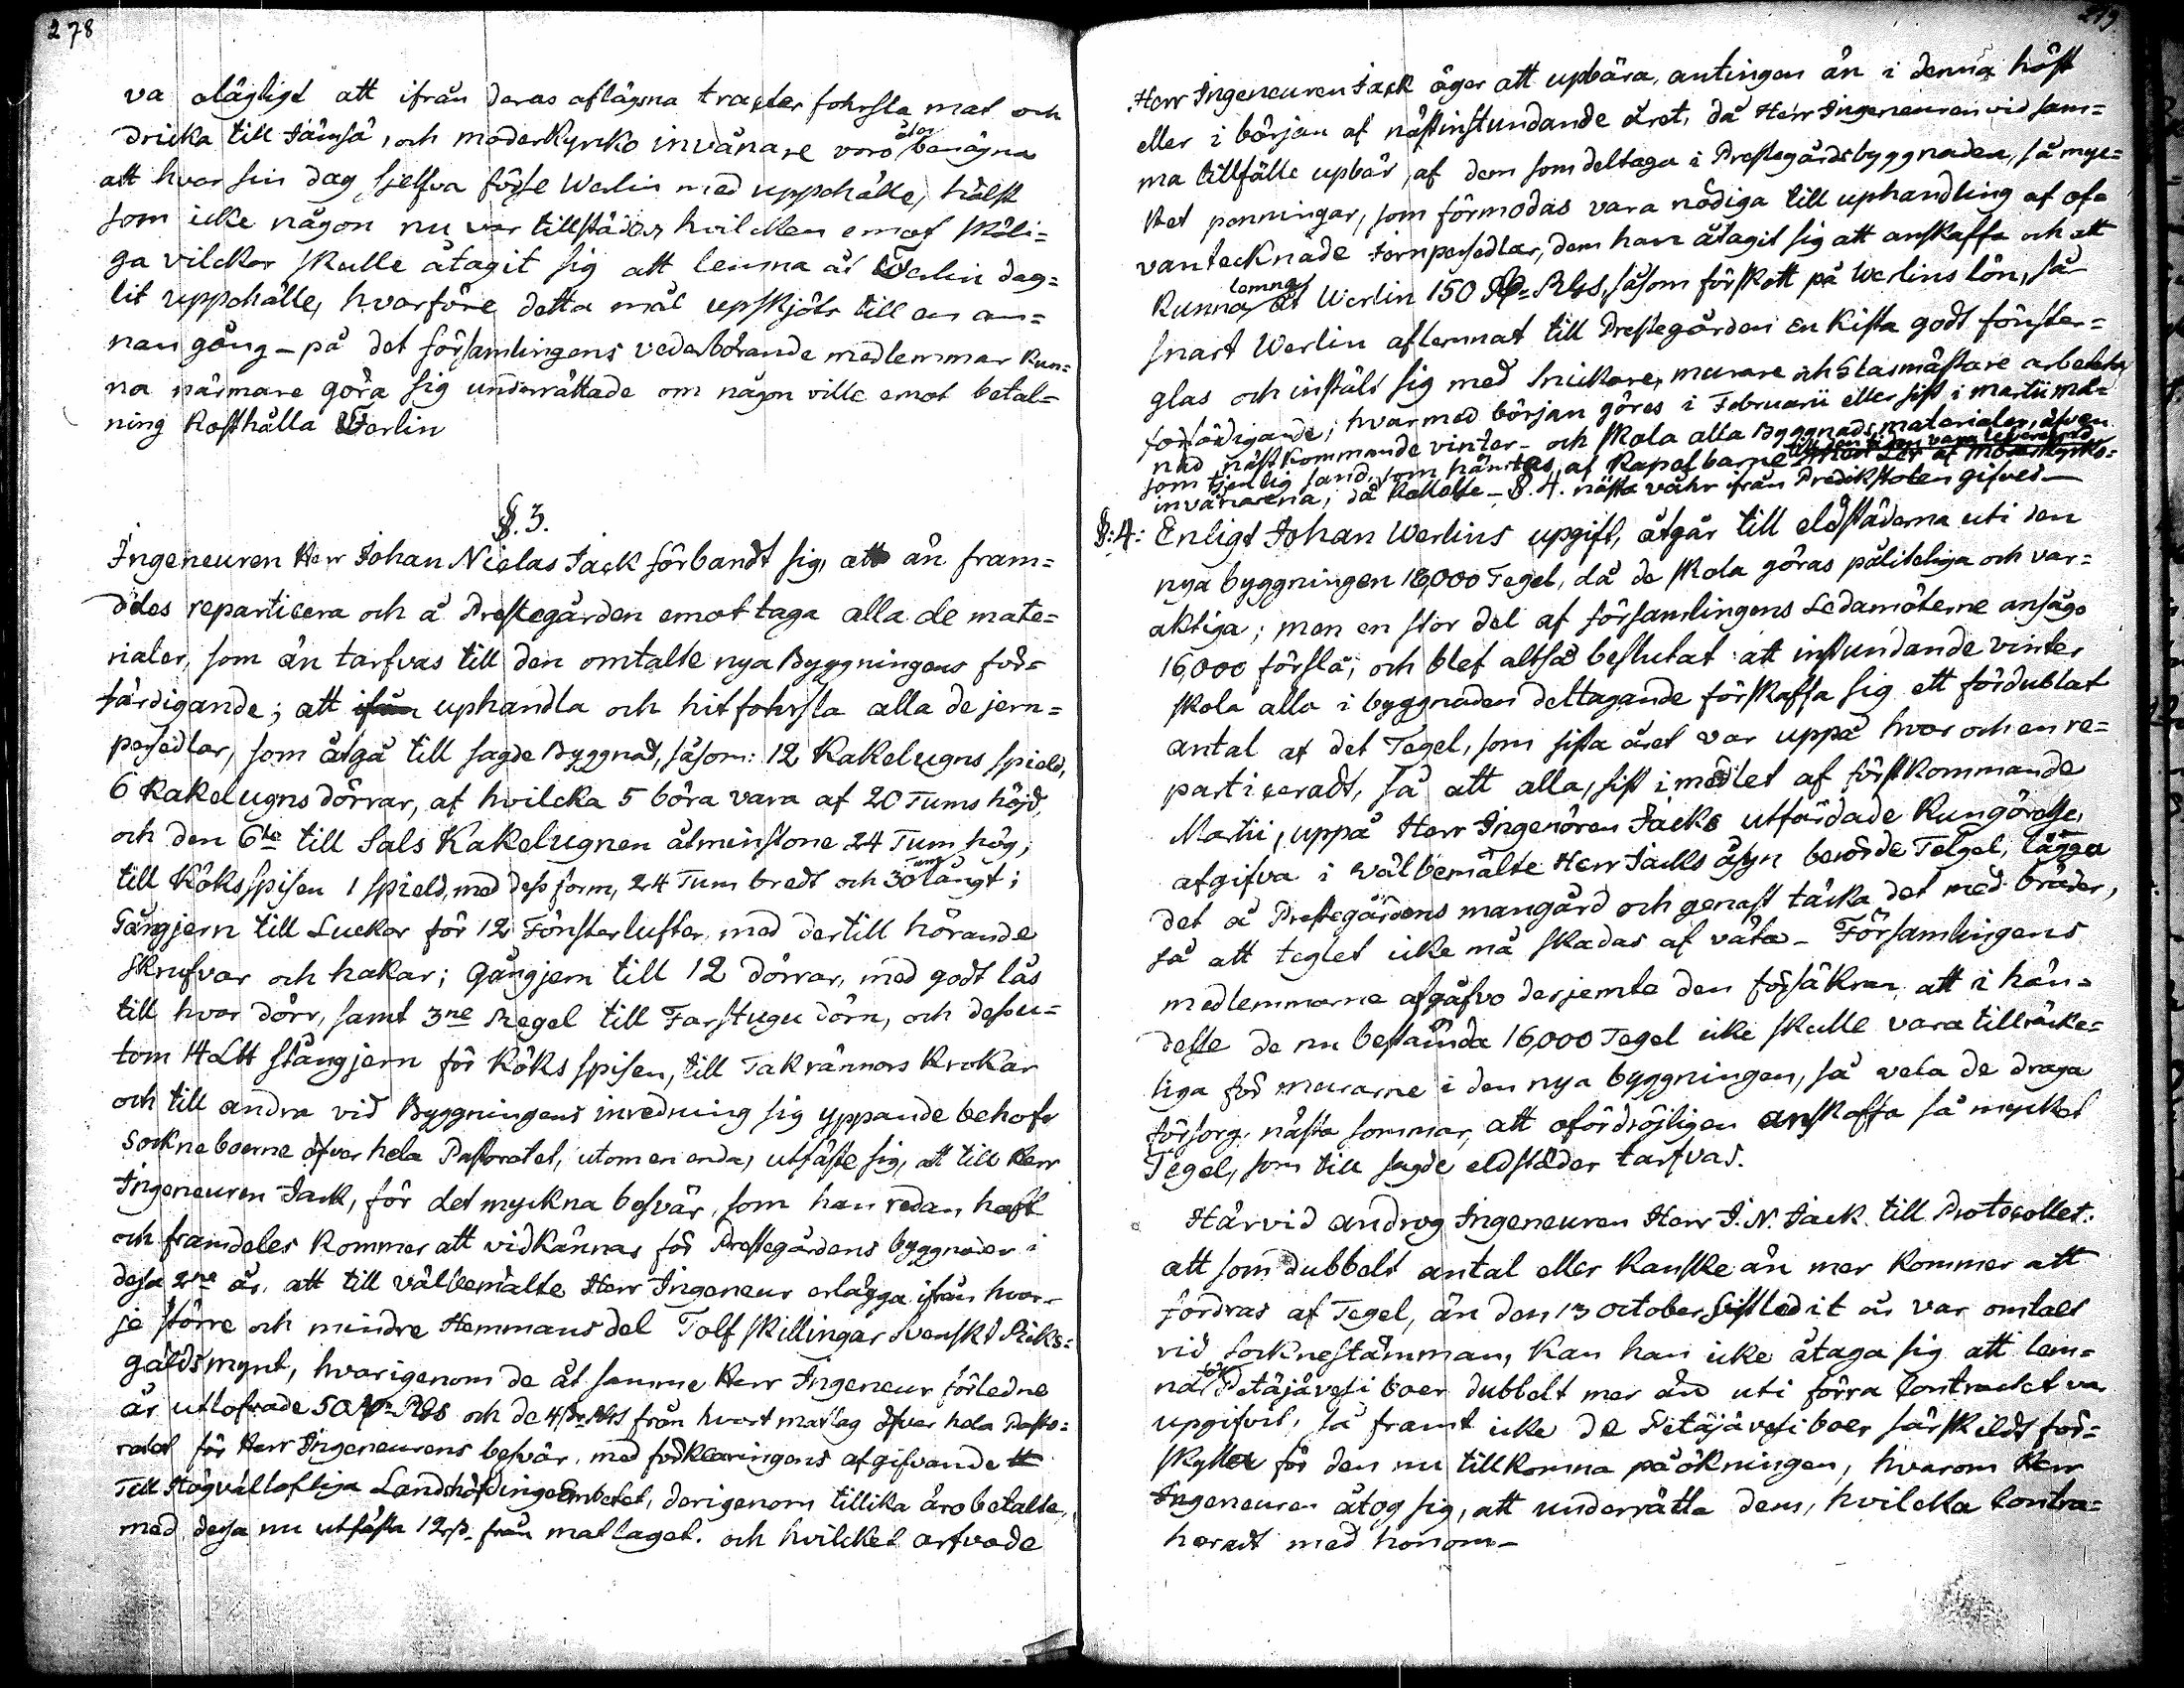 278
va olägligt att ifrån deras aflägsna tracter fohrsla mat och
dricka till Jämsä, och moderkyrko invånare voro benägna
att hvar sin dag sjelfva förse Werlin med uppehälle, hälst
som icke någon nu var tillstädes, hvilcken emot skäli=
ga vilckor skulle åtagit sig att lemna åt Werlin dag=
lit uppehälle, hvarföre detta mål upskjöts till en an=
nan gång – på det församlingens vederbörande medlemmar kun=
na närmare göra sig underrättade om någon ville emot betal=
ning kosthålla Werlin
§. 3.
Ingeneuren Herr Johan Niclas Jack förbandt sig, att än fram=
deles reparticera och å Prestegården emottaga alla de mate=
rialer, som än tarfvas till den omtalte nya Byggningens för=
färdigande; att uphandla och hitfohrsla alla de jern=
persedlar, som åtgå till sagde Byggnad, såsom: 12 Kakelugns spield,
6 Kakelugns dörrar, af hvilcka 5 böra vara af 20 Tums höjd,
och den 6te till Sals Kakelugnen åtminstone 24 Tum hög;
till Köksspisen 1 spield, med dess form, 24 Tum bredt och 30 Tum långt;
Gångjern till Luckor för 12 Fönsterlufter, med dertill hörande
skrufvar och hakar; Gångjern till 12 dörrar, med godt lås
till hvar dörr, samt 3ne Regel till Farstugu dörn, och dessu=
tom 14 L℔ stångjern för Köks spisen, till Takrännors krokar
och till andra vid Byggningens inredning sig yppande behof
Sockneboerne öfver hela Pastoratet, utom en enda, utfäste sig, att till Herr
Ingeneuren Jack, för det myckna besvär, som han redan haft
och framdeles kommer att vidkännas för Prestegårdens byggnader i
dessa 2ne år, att till välbemälte Herr Ingeneur erlägga ifrån hvar=
je större och mindre Hemmansdel Tolf skillingar Svenskt Riks=
gäldsmynt, hvarigenom de åt samme Herr Ingeneur förledne
år utlofvade 50 Rd. Rgs och de 4 sk. Rgs från hvart matlag öfver hela Pasto=
ratet för Herr Ingeneurens besvär, med förklaringens afgifvande
Till Högvällofliga Landshöfdinge Embetet, derigenom tillika äro betalte,
med dessa nu utfästa 12 sk. från matlaget. och hvilcket arfvode
279
Herr Ingeneuren Jack äger att upbära, antingen än i denna höst
eller i början af nästinstundande året, då Herr Ingeneuren vid sam=
ma tillfälle upbär, af dem som deltaga i Prestegårdsbyggnaden, så myc=
ket penningar, som förmodas vara nödiga till uphandling af of=
vantecknade Jernpersedlar, dem han åtagit sig att anskaffa och att
kunna lemna åt Werlin 150 Rd. Rgs, såsom förskott på Werlins lön, så
snart Werlin aflemnat till Prestegården en Kista godt fönster=
glas och instält sig med Snickare, murare och Glasmästare arbetets
förfärdigande; hvarmed början göres i Februarii eller sist i Martii må=
nad nästkommande vinter – och skola alla Byggnads materialier, äfven
som tjenlig sand, som hämtas af Kapelbarne
invånarena, då Kallelse – §. 4. nästa våhr från Predikstolen gifves –
§: 4: Enligt Johan Werlins upgift, åtgår till eldstäderna uti den
nya byggningen 18,000 Tegel, då de skola göras påliteliga och var=
aktiga; men en stor del af församlingens Ledamöterne ansågo
16,000 förslå, och blef altså beslutat: att instundande vinter
skola alla i byggnaden deltagande förskaffa sig ett fördublat
antal af det Tegel, som sista året var uppå hvar och en re=
particeradt, så att alla, sist i medlet af förstkommande
Martii, uppå Herr Ingenören Jacks utfärdade Kungörelse,
afgifva i välbemälte Herr Jacks åsyn berörde Tegel, lägga
det å Prestegårdens mangård och genast täcka det med bräder,
så att teglet icke må skadas af väta – Församlingens
medlemmarne afgåfvo derjemte den försäkran, att i hän=
delse de nu bestämda 16,000 Tegel icke skulle vara tillräcke=
liga för murarne i den nya byggningen, så vela de draga
försorg, nästa sommar, att ofördröjligen anskaffa så mycket
Tegel, som till sagde eldstäder tarfvas.
Härvid androg Ingeneuren Herr J. N. Jack till Protocollet:
att som dubbelt antal eller kanske än mer kommer att
fordras af Tegel, än den 13 October sistledit år var omtalt
vid Socknestämman, kan han icke åtaga sig att lem=
na för Petäjävesi boer dubbelt mer än uti förra Contractet var
upgifvit, så framt icke de Petäjävesi boer särskildt för=
skyller för den nu tillkomna påökningen, hvarom Herr
Ingeneuren åtog sig, att underrätta dem, hvilcka Contra=
heradt med honom –